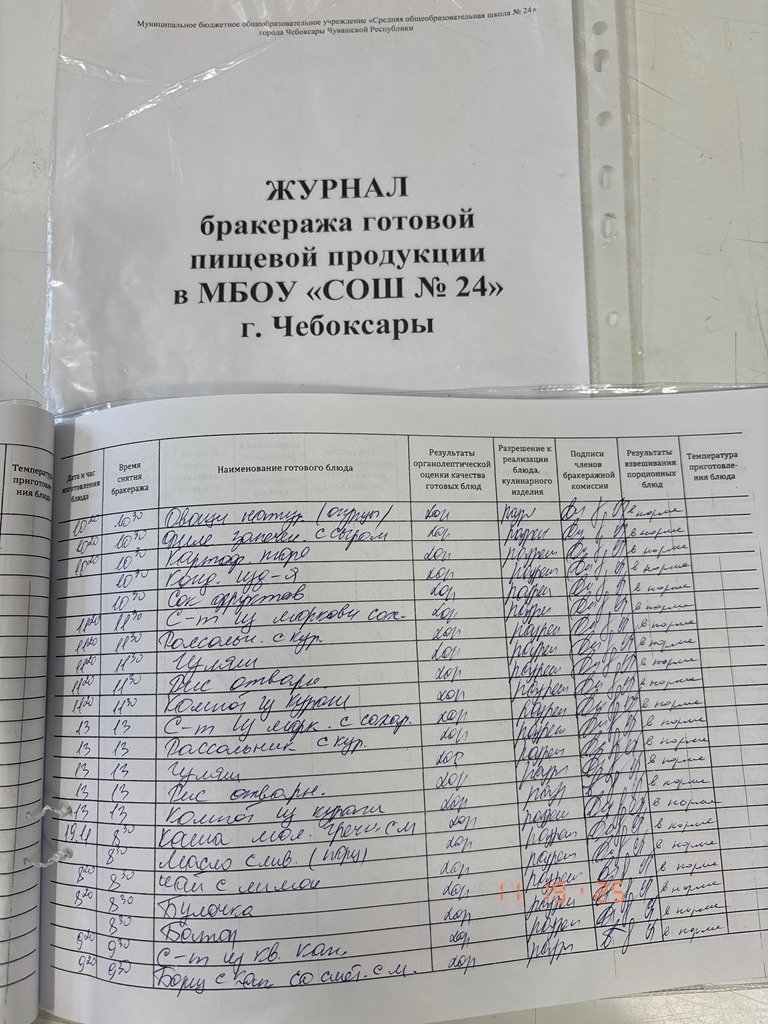 Муниципальное бюджетное общеобразовательное учреждение «Средняя общеобразовательная школа № 24»
города Чебоксары Чувашской Республики
ЖУРНАЛ
бракеража готовой
пищевой продукции
в МБОУ «СОШ № 24»
г. Чебоксары
Температура приготовления блюда
Дата и час изготовления блюда Время снятия бракеража Наименование готового блюда Результаты органолептической оценки качества готовых блюд Разрешение к реализации блюда, кулинарного изделия Подписи членов бракеражной комиссии Результаты взвешивания порционных блюд Температура приготовле-ния блюда
10 20 10 30 Овощи натур. (огурцы) хор разр в норме
10 20 10 30 Филе запечен. с сыром хор разреш в норме
10 20 10 30 Картоф. пюре хор разреш в норме
10 30 Конд. изд-я хор разреш в норме
10 30 Сок фруктов хор разреш в норме
11 20 11 30 С-т из моркови сах. хор разреш в норме
11 20 11 30 Рассольн. с кур. хор разреш в норме
11 20 11 30 Гуляш хор разреш в норме
11 20 11 30 Рис отварн хор разреш в норме
11 20 11 30 Компот из кураги хор разреш в норме
13 13 С-т из морк. с сахар. хор разреш в норме
13 13 Рассольник с кур. хор разреш в норме
13 13 Гуляш хор разр в норме
13 13 Рис отварн. хор разр в норме
13 13 Компот из кураги хор разреш в норме
19.11 8 30 Каша мол. гречн. см хор разреш в норме
8 20 8 30 Масло слив. (порц) хор разреш в норме
8 20 8 30 Чай с лимон хор разреш в норме
8 30 Булочка хор разреш в норме
8 30 Батон хор разреш в норме
9 20 9 30 С-т из кв. кап. хор разреш в норме
9 20 9 30 Борщ с кап. со смет. с м. хор разр в норме
11 19 '25